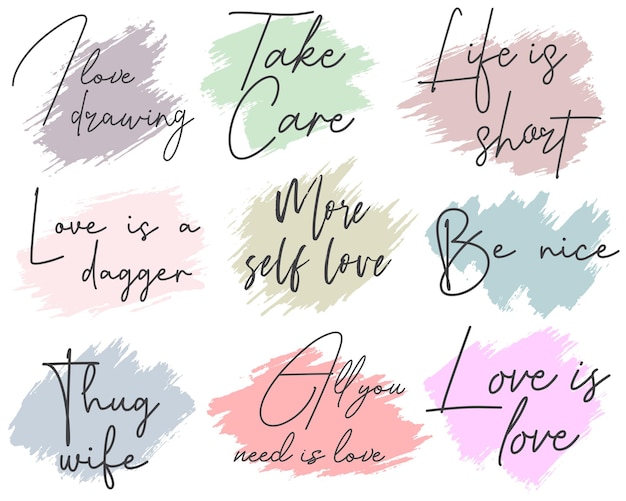 I love
drawing
Take
Care
Life is
short
Love is a
dagger
More
self love
Be nice
Thug
wife
All you
need is love
Love is
love